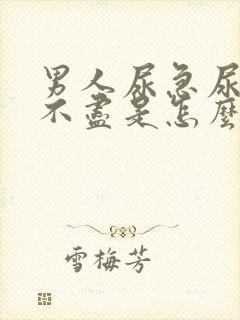 男人尿急尿
不盡是怎麼
雪梅芳